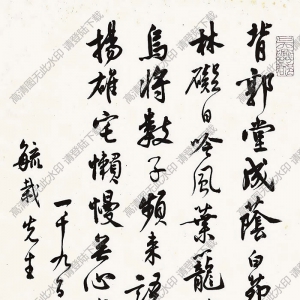 背郭堂成蔭白茅
林礙日吟風葉籠
烏將數子頻来語
揚雄宅懶慢無心
一千九百
毓哉先生
高清图无此水印 请登陆下载